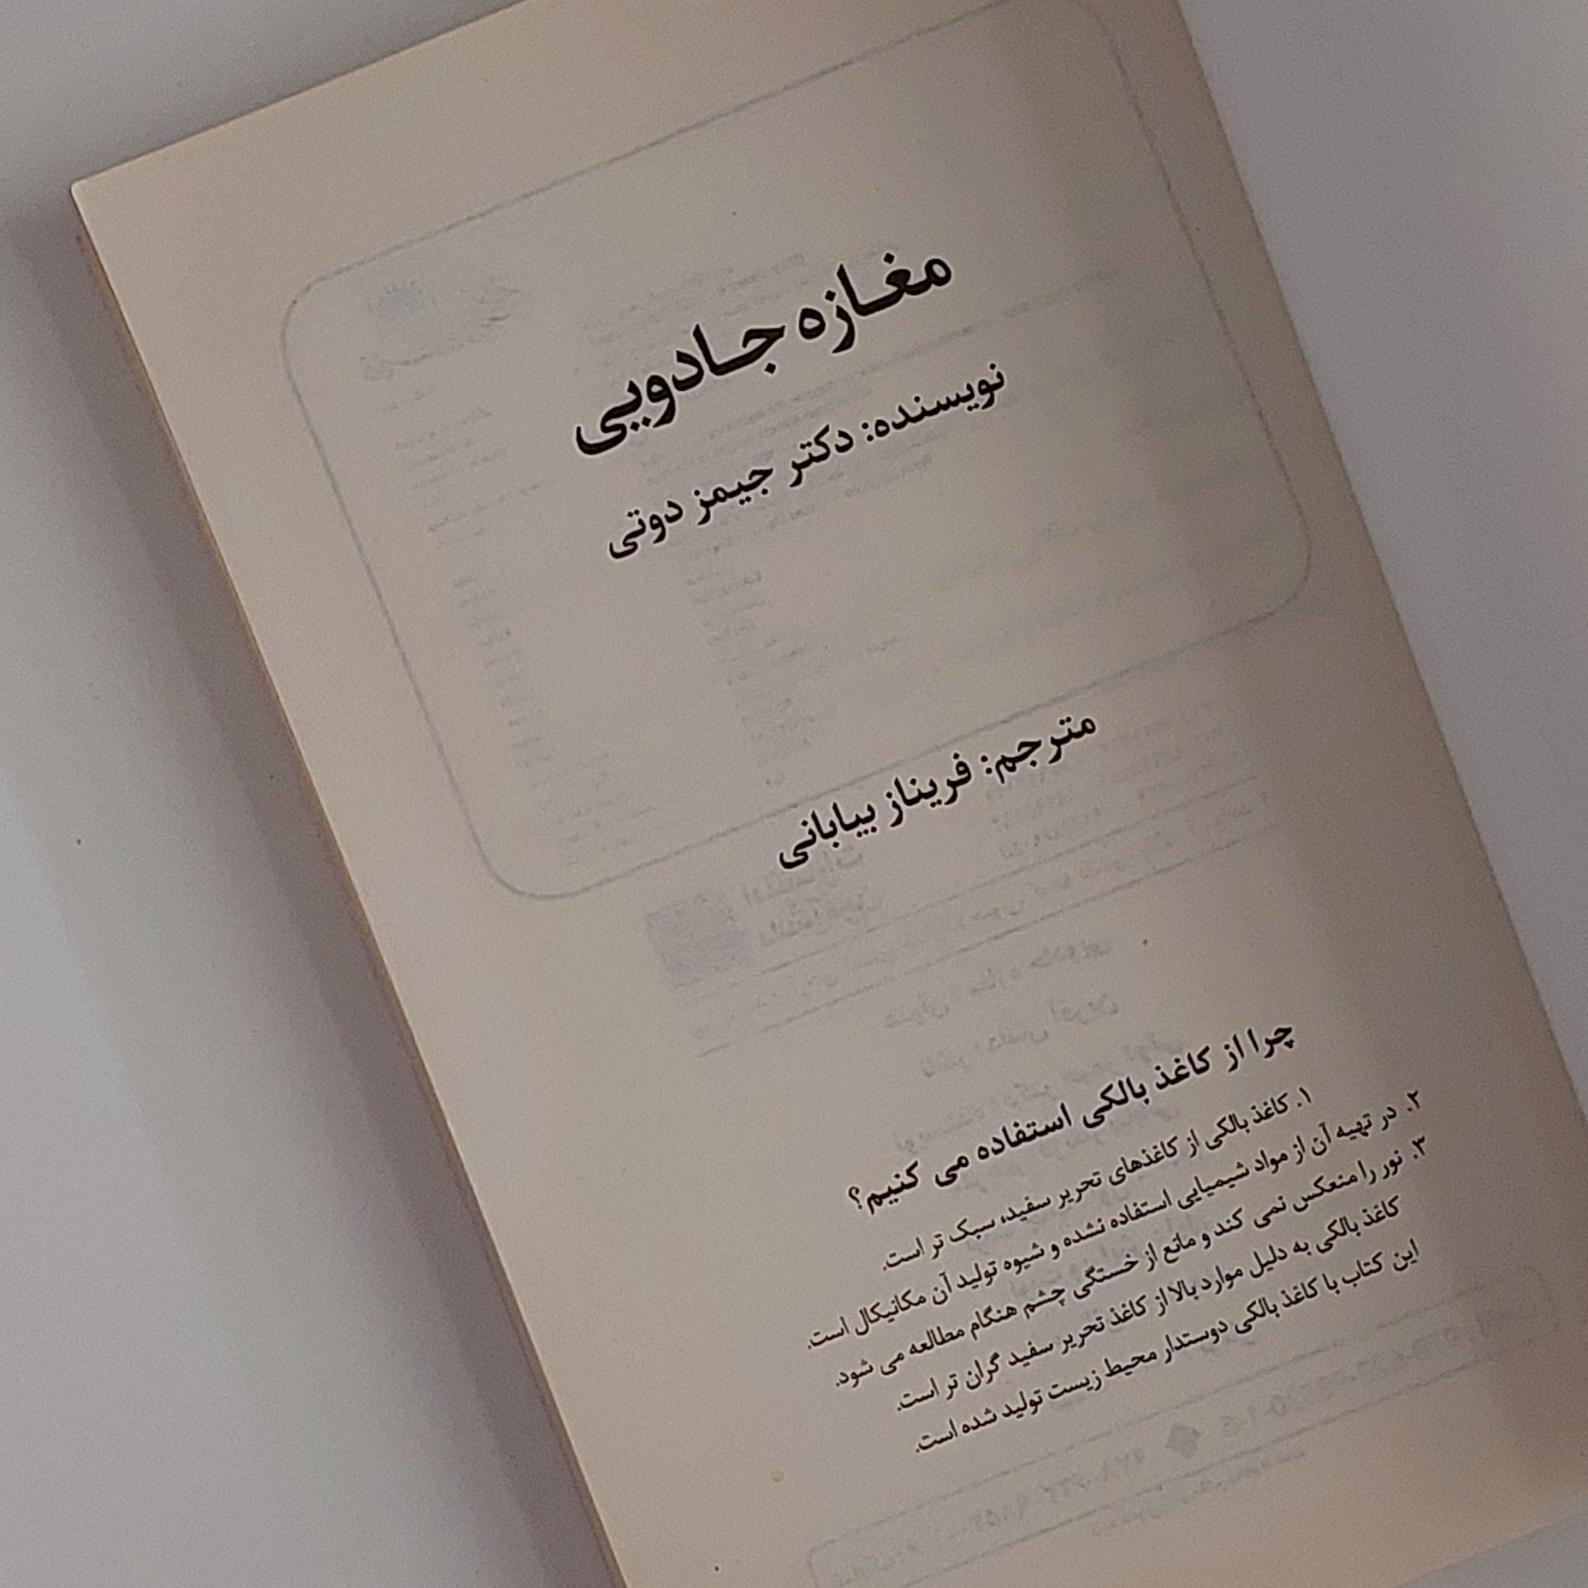 مغازه جادویی
نویسنده: دکتر جیمز دوتی
مترجم: فریناز بیابانی
چرا از کاغذ بالکی استفاده می کنیم؟
۱. کاغذ بالکی از کاغذهای تحریر سفید، سبک تر است.
۲. در تهیه آن از مواد شیمیایی استفاده نشده و شیوه تولید آن مکانیکال است.
۳. نور را منعکس نمی کند و مانع از خستگی چشم هنگام مطالعه می شود.
کاغذ بالکی به دلیل موارد بالا از کاغذ تحریر سفید گران تر است.
این کتاب با کاغذ بالکی دوستدار محیط زیست تولید شده است.